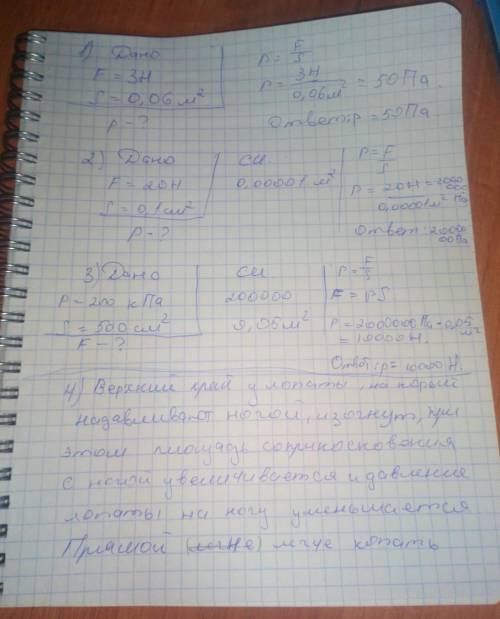 1) Дано
F = 3Н
S = 0,06 м²
p - ?
P = F/S
P = 3Н/0,06м² = 50 Па.
Ответ: p = 50 Па.
2) Дано
F = 20Н
S = 0,1 см²
P - ?
СИ
0,00001 м²
P = F/S
P = 20Н/0,00001м² = 2000 000 Па
Ответ: 20000 00Па
3) Дано
P = 200 кПа
S = 500 см²
F - ?
СИ
200000
0,05 м²
P = F/S
F = PS
P = 2000000 Па · 0,05 м²
= 10000 Н.
Ответ: p = 10000 Н.
4) Верхний край у лопаты, на
надавливают ногой, изогнут, при
этом площадь соприкосновения
с ногой увеличивается и давление
лопаты на ногу уменьшается
Прямой копать